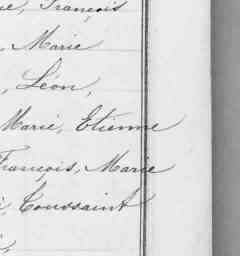 , François
, Marie
, Léon,
Marie, Etienne
François, Marie
, Toussaint
,